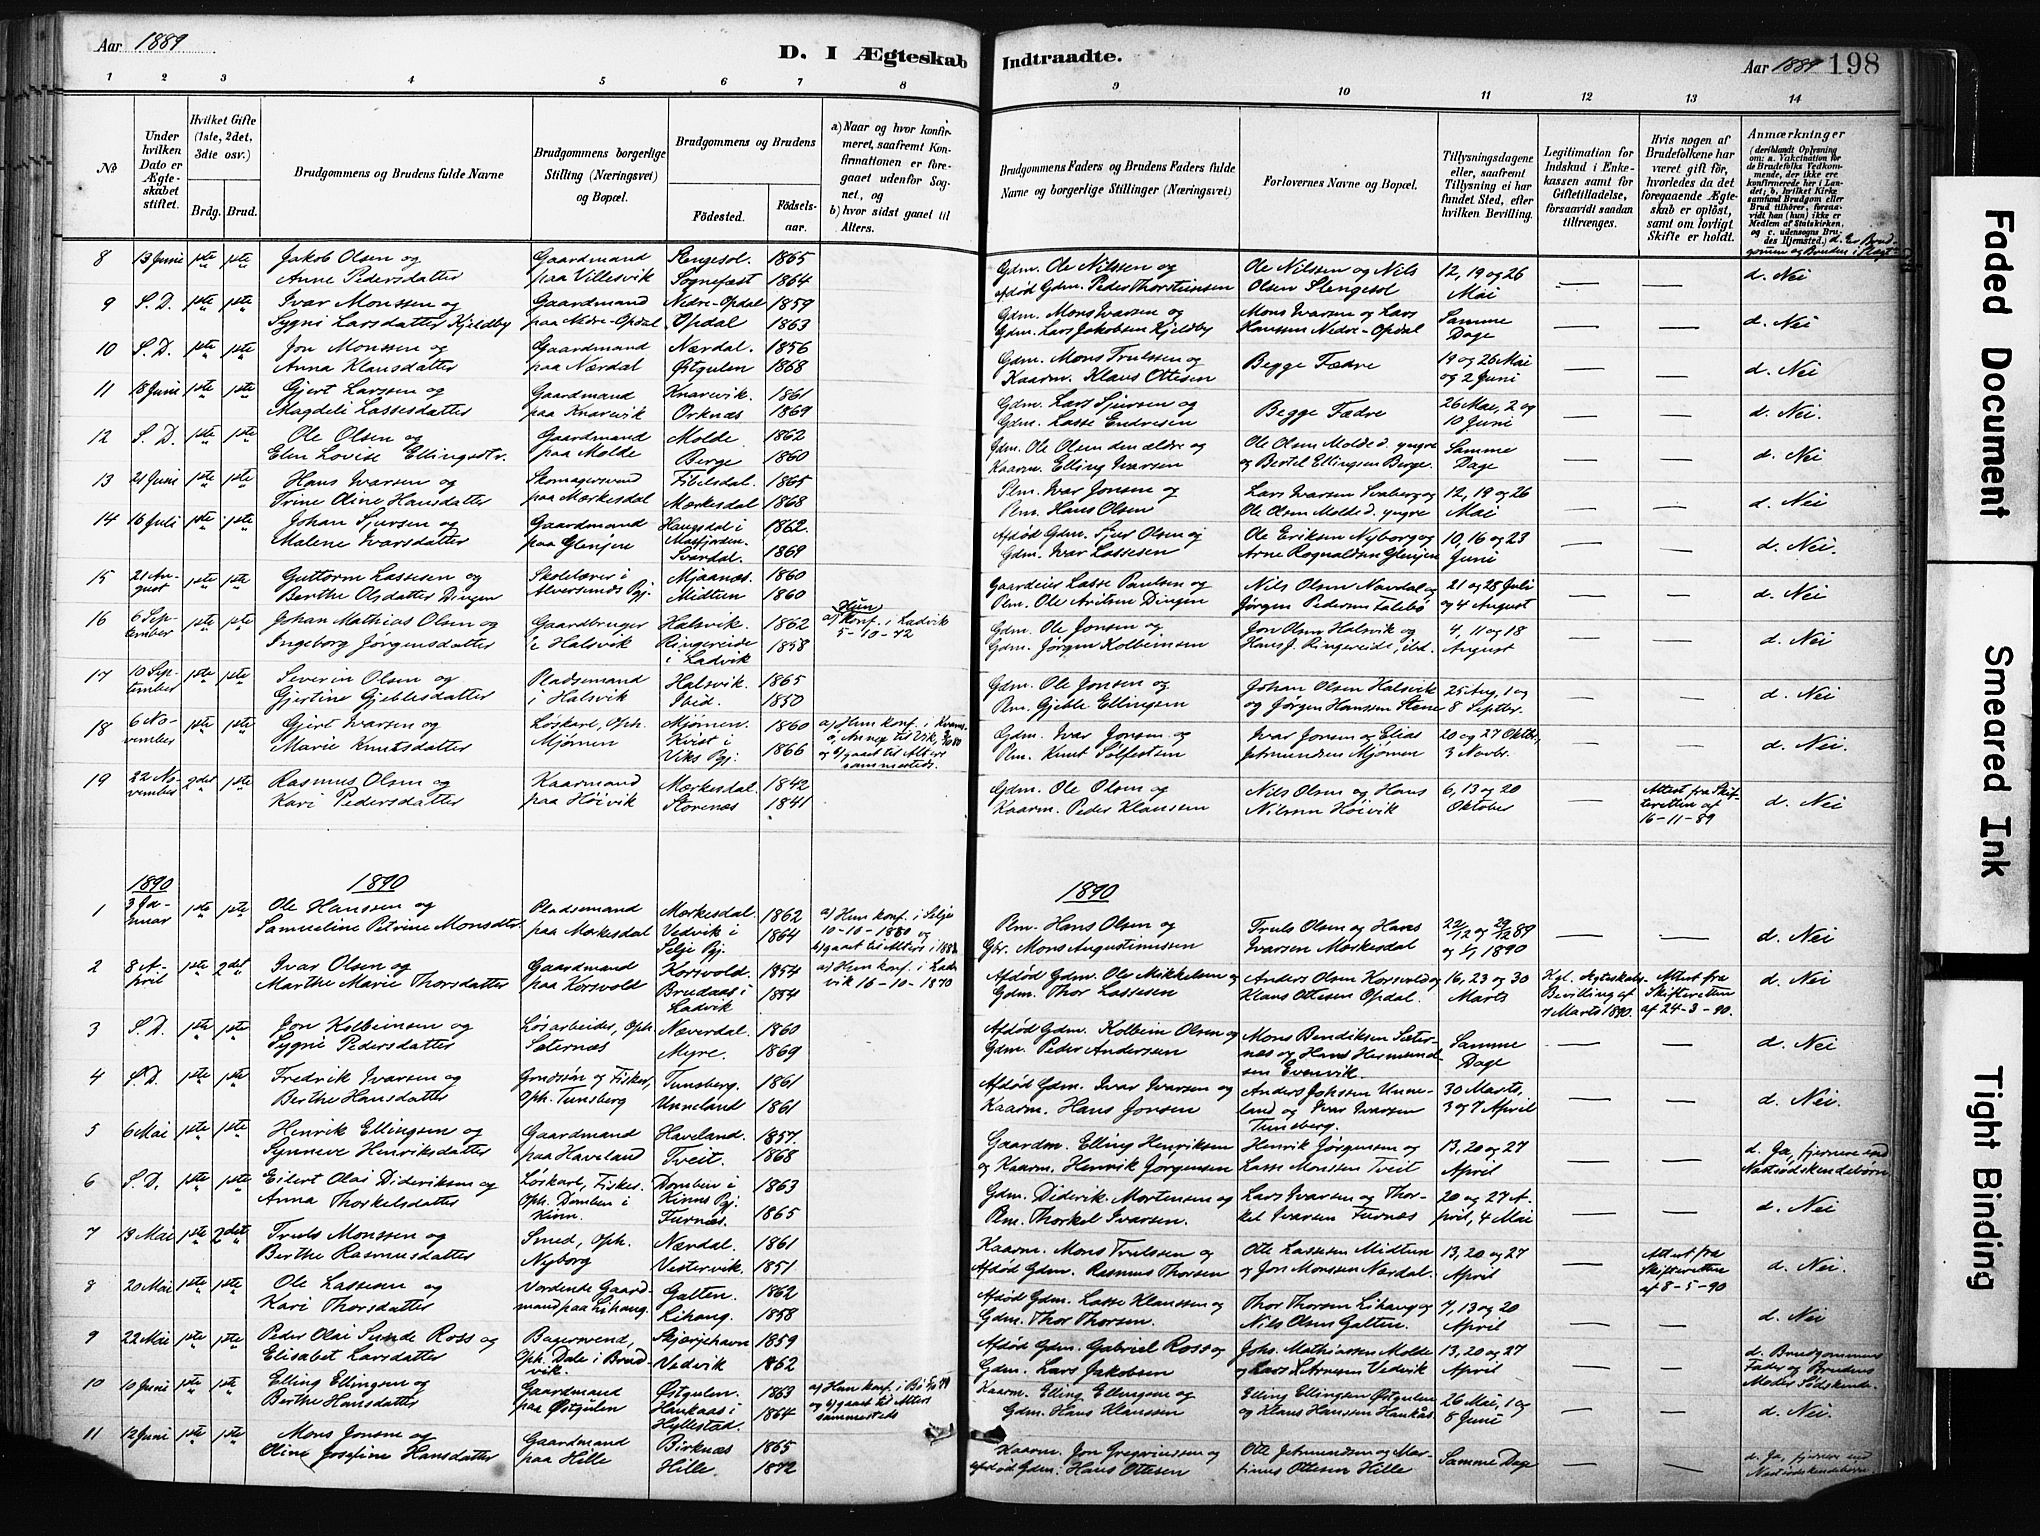 Aar 1889
D. I Ægteskab Indtraadte.
Aar 1889 198
1 2 3 4 5 6 7 8 9 10 11 12 13 14
No
Under hvilken Dato er Ægteskabet stiftet.
Hvilket Gifte (1ste, 2det, 3die osv.)
Brdg. Brud.
Brudgommens og Brudens fulde Navne
Brudgommens borgerlige Stilling (Næringsvei) og Bopæl.
Brudgommens og Brudens
Fødested. Fødselsaar.
a) Naar og hvor konfirmeret, saafremt Konfirmationen er foregaaet udenfor Sognet, og
b) hvor sidst gaaet til Alters.
Brudgommens Faders og Brudens Faders fulde Navne og borgerlige Stillinger (Næringsvei)
Forlovernes Navne og Bopæl.
Tillysningsdagene eller, saafremt Tillysning ei har fundet Sted, efter hvilken Bevilling.
Legitimation for Indskud i Enkekassen samt for Giftetilladelse, forsaavidt saadan tiltrænges.
Hvis nogen af Brudefolkene har været gift før, hvorledes da det foregaaende Ægteskab er opløst, samt om lovligt Skifte er holdt.
Anmærkninger
8 13 Juni 1ste 1ste Jakob Olsen og Gaardmand Stengesol. 1865 Gdm. Ole Nilssen og Ole Nilssen og Nils 12, 19 og 26 — — d. Nei
Anne Pedersdatter paa Villesvik Sognefæst 1864 afdød Gdm. Peder Thorsteinsen Olsen Stengesol Mai
9 S. D. 1ste 1ste Ivar Monssen og Gaardmand Nedre-Opdal 1859 Gdm. Mons Ivarsen og Mons Ivarsen og Lars Samme — — d. Nei
Sygni Larsdatter Kjeldby paa Nedre-Opdal Opdal 1863 Gdm. Lars Jakobsen Kjeldby Hanssen Nedre-Opdal Dage
10 S. D. 1ste 1ste Jon Monssen og Gaardmand Nærdal. 1856 Gdm. Mons Trulssen og Begge Fædre 19 og 26 Mai — — d. Nei
Anna Klausdatter paa Nærdal Østgulen 1868 Kaarm. Klaus Ottesen og 2 Juni
11 18 Juni 1ste 1ste Gjert Larsen og Gaardmand Knarvik. 1861 Gdm. Lars Sjursen og Begge Fædre 26 Mai, 2 og — — d. Nei.
Magdeli Lassesdatter paa Knarvik Orknæs 1869 Gdm. Lasse Endresen 10 Juni
12 S. D. 1ste 1ste Ole Olsen og Gaardmand Molde. 1862 Gdm. Ole Olsen den ældre og Ole Olsen Molde d. yngre Samme — — d. Nei
Elen Lovise Ellingsdtr. paa Molde Berge 1860 Kaarm. Elling Ivarsen og Bertel Ellingsen Berge. Dage
13 21 Juni 1ste 1ste Hans Ivarsen og Skomagersvend 1865 Plm. Ivar Jonsen og Lars Ivarsen Svaberg og 12, 19 og 26 — — d. Nei
Trine Oline Hansdatter paa Mærkesdal Mærkesdal 1868 Plm. Hans Olsen Ole Olsen Molde d. yngre Mai
14 16 Juli 1ste 1ste Johan Sjursen og Gaardmand Haugsdal i 1862. Afdød Gdm. Sjur Olsen og Ole Eriksen Nyborg og 10, 16 og 23 — — d. Nei.
Malene Ivarsdatter paa Glenjen Masfjorden. Svardal. 1869 Gdm. Ivar Lassesen Arne Rognaldsen Glenjen Juni
15 21 August 1ste 1ste Guttorm Lassesen og Skolelærer i Mjaanæs. 1860 Gaardeier Lasse Paulsen og Nils Olsen og 21 og 28 Juli — — d. Nei
Berthe Olsdatter Dingen Alversunds Pgj. Midtun 1860 Plm. Ole Dingen Jørgen Pedersen og 4 August
16 6 September 1ste 1ste Johan Mathias Olsen og Gaardbruger Halsvik. 1862 a) Konf. i Ladvik Gdm. Ole Jonsen og Jon Olsen Halsvik og 4, 11 og 18 — — d. Nei
Ingeborg Jørgensdatter i Halsvik Ringereide i Ladvik 1858 5-10-72 Gdm. Jørgen Kolbeinsen Hans J. Ringereide, ibd. August
17 10 September 1ste 1ste Severin Olsen og Pladsemand Halsvik. 1865 Gdm. Ole Jonsen og Johan Olsen Halsvik 25 Aug, 1 og — — d. Nei
Gjertine Gjeblesdatter i Halsvik 1850 Plm. Gjeble Ellingsen og Jørgen Hanssen Stene 8 Septbr.
18 6 November 1ste 1ste Gjert Ivarsen og Løskarl, Oph. Mjømen. 1860 a) Hun konf. i Gdm. Ivar Jonsen og Ivar Jonsen og Elias 20 og 27 Oktbr, — — d. Nei
Marie Knutsdatter Mjømen Kvist i Viks Pgj. 1866 og b) gaaet til Alters sammesteds. Plm. Knut Sølfestsen Jetmundsen Mjømen 3 Novbr.
19 22 November 2det 1ste Rasmus Olsen og Kaarmand Mærkesdal 1842 Gdm. Ole Olsen og Nils Olsen og Hans 6, 13 og 20 — Attest fra Skifteretten af 16-11-89 d. Nei
Kari Pedersdatter paa Høivik Storenæs 1841 Kaarm. Peder Klaussen Nilssen Høivik Oktober
1890 1890 1890
1 3 Januar 1ste 1ste Ole Hanssen og Pladsemand Mærkesdal. 1862 a) Hun konf. i Selje Plm. Hans Olsen og Truls Olsen og Hans 22/12 og 29/12 89 — — d. Nei
Samueline Petrine Monsdtr paa Mærkesdal Vedvik i Selje Pgj. 1864 10-10-1880 og b) gaaet til Alters i Gbr. Mons Augustinussen Ivarsen Mærkesdal og 1/1 1890
2 8 April 1ste 2det Ivar Olsen og Gaardmand Korsvold. 1854 a) Hun konf. i Lad- Afdød Gdm. Ole Mikkelsen og Anders Olsen Korsvold og 16, 23 og 30 Kgl. Ægteskabs- Attest fra d. Nei
Marthe Marie Thorsdatter paa Korsvold Brudaas i Ladvik 1854 vik 16-10-1870 Gdm. Thor Lassesen Klaus Ottesen Opdal. Marts Bevilling af 7 Marts 1890. Skifteretten af 24-3-90.
3 S. D. 1ste 1ste Jon Kolbeinsen og Løsarbeider, Oph. Næverdal. 1860 Afdød Gdm. Kolbein Olsen og Mons Bendiksen Sæter- Samme — — d. Nei
Sygni Pedersdatter Sæternæs Myre. 1869 Gdm. Peder Andersen næs og Hans Hermundsen Evenvik. Dage
4 S. D. 1ste 1ste Fredrik Ivarsen og Grdssøn og Fisker, Tunsberg. 1861 Afdød Gdm. Ivar Ivarsen og Anders Jokssen Unne- 30 Marts, — — d. Nei.
Berthe Hansdatter Oph. Tunsberg Unneland 1861 Kaarm. Hans Jonsen land og Ivar Ivarsen Tunsberg. 3 og 7 April
5 6 Mai 1ste 1ste Henrik Ellingsen og Gaardmand Haveland. 1857. Gaardm. Elling Henriksen Henrik Jørgensen og 13, 20 og 27 — — d. Ja, fjernere end
Synneve Henriksdatter paa Haveland Tveit. 1868 og Kaarm. Henrik Jørgensen Lasse Monssen Tveit April Næstsødskendebørn
6 S. D. 1ste 1ste Eilert Olai Dideriksen og Løskarl, Fisker. Domben i 1863 Gdm. Diderik Mortensen og Lars Ivarsen og Thor- 20 og 27 A- — — d. Nei
Anna Thorkelsdatter Oph. Domben i Kinn Kinns Pgj. Furnæs. 1865 Plm. Thorkel Ivarsen. kel Ivarsen Furnæs pril, 4 Mai
7 13 Mai 1ste 2det Truls Monssen og Smed, Oph. Nærdal. 1861 Kaarm. Mons Trulssen og Otte Lassesen Midtun 13, 20 og 27 — Attest fra Skifteretten af 8-5-90 d. Nei.
Berthe Rasmusdatter Nyborg Vestervik. 1851 Afdød Gdm. Rasmus Thorsen og Jon Monssen Nærdal. April
8 20 Mai 1ste 1ste Ole Lassesen og Vordende Gaard- Galten. 1862 Afdød Gdm. Lasse Klaussen og Thor Thorsen Lihaug og 7, 13 og 20 — — d. Nei
Kari Thorsdatter mand paa Lihaug. Lihaug. 1858 Gdm. Thor Thorsen. Nils Olsen Galten. April
9 22 Mai 1ste 1ste Peder Olai Sunde Ross og Bagersvend, Skjærjehavn 1859 Afdød Gdm. Gabriel Ross og Johs. Mathiassen Molde 13, 20 og 27 — — d. Brudgommens
Elisabet Larsdatter Oph. Dale i Brudvik. Vedvik 1862 Gdm. Lars Jakobsen og Lars Vedvik April Fader og Brudens Moder Sødskende.
10 10 Juni 1ste 1ste Elling Ellingsen og Gaardmand Østgulen. 1863 a) Hun konf. i Kaarm. Elling Ellingsen og Elling Ellingsen Østgulen 26 Mai, 1 og — — d. Nei.
Berthe Hansdatter paa Østgulen Haukaas i Hyllestad. 1864 og b) gaaet til Alters sammesteds Gdm. Hans Klaussen og Klaus Hanssen Haukås. 8 Juni
11 12 Juni 1ste 1ste Mons Jonsen og Gaardmand Birknæs 1865 Kaarm. Jon Gregoriussen og Otte Jetmundsen og Mar- Samme Dage — — d. Ja, fjernere end
Oline Josefine Hansdatter paa Hille Hille. 1872 afdød Gdm. Hans Ottesen tinus Ottesen Hille Næstsødskendebørn
Faded Document
Smeared Ink
Tight Binding